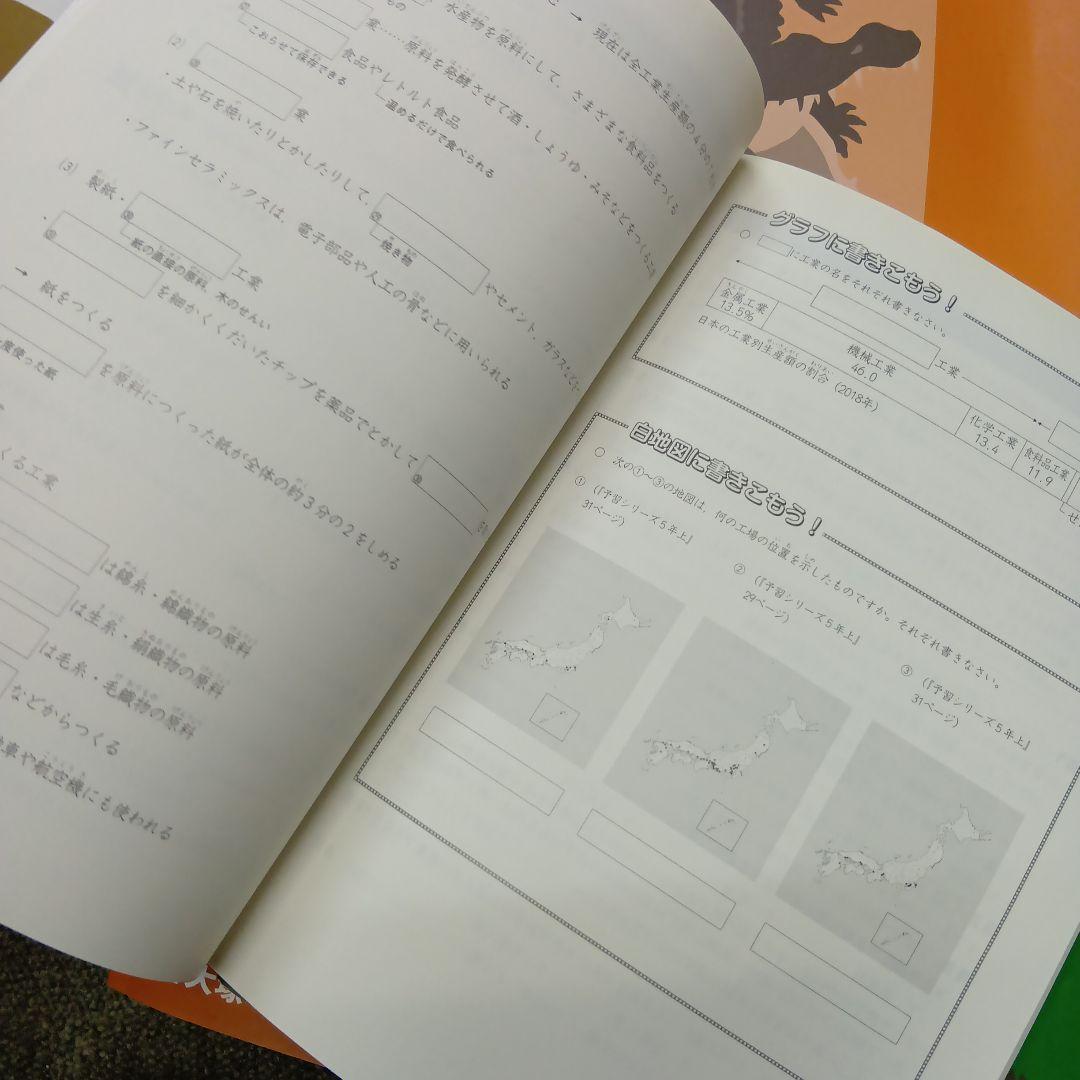 現在は全工業生産額の4分の
水産物を原料にして、さまざまな食料品をつくる
業……原料を発酵させて酒・しょうゆ・みそなどをつくる工
食品やレトルト食品
こおらせて保存できる
温めるだけで食べられる
(2)
業
・土や石を焼いたりとかしたりして、
やセメント、ガラスなど
焼き物
・ファインセラミックスは、電子部品や人工の骨などに用いられる
(3) 製紙・
工業
紙の直接の原料 木のせんい
を細かくくだいたチップを薬品でとかして
→ 紙をつくる
を原料につくった紙が全体の約3分の2をしめる
度使った紙
くる工業
は綿糸・綿織物の原料
は生糸・絹織物の原料
は毛糸・毛織物の原料
などからつくる
車や航空機にも使われる
グラフに書きこもう!
○ に工業の名をそれぞれ書きなさい。
工業
金属工業
13.5%
機械工業
46.0
化学工業
13.4
食料品工業
11.9
せ
日本の工業別生産額の割合(2018年)
白地図に書きこもう!
○ 次の①~③の地図は、何の工場の位置を示したものですか。それぞれ書きなさい。
① (『予習シリーズ5年上』
31ページ)
② (『予習シリーズ5年上』
29ページ)
③ (『予習シリーズ5年上』
31ページ)
大塚